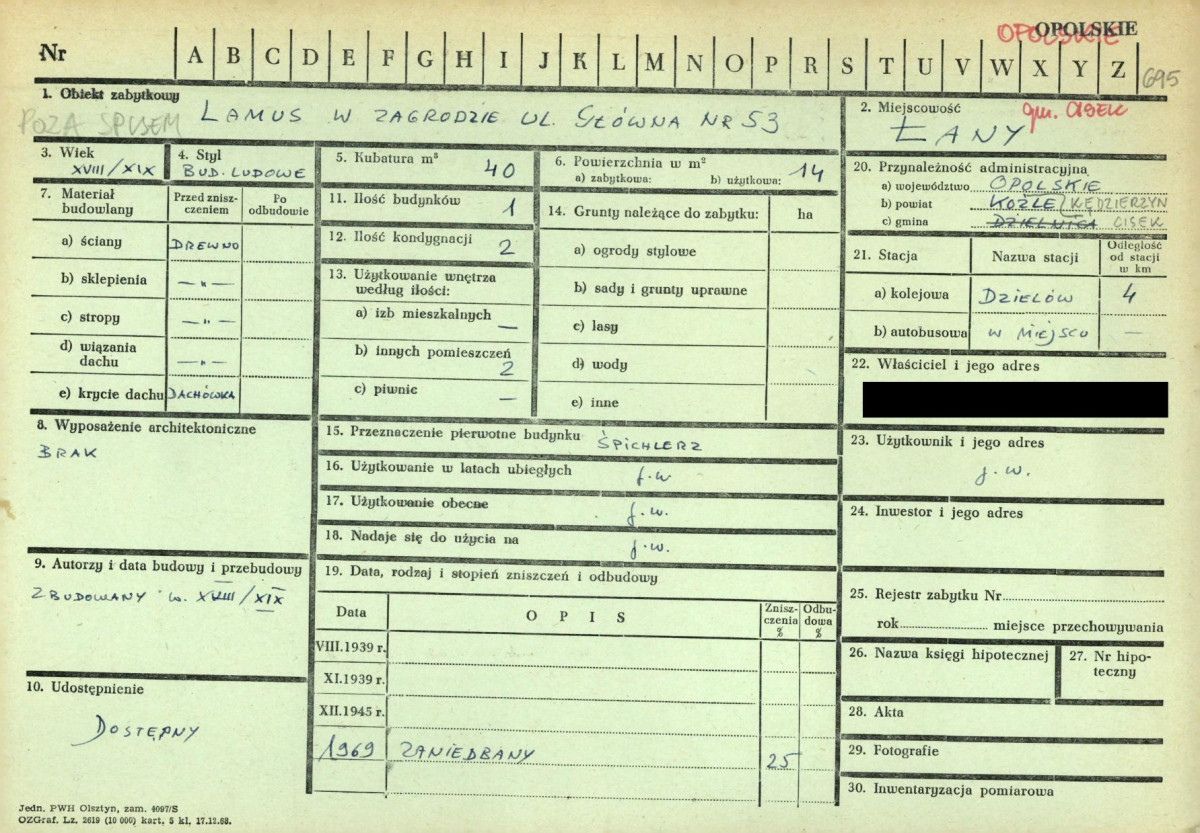 OPOLSKIE
OPOLSKIE
Nr A B C D E F G H I J K L M N O P R S T U V W X Y Z
695
1. Obiekt zabytkowy
POZA SPISEM
LAMUS W ZAGRODZIE UL. GŁÓWNA NR 53
2. Miejscowość
gm. CISEK
ŁANY
3. Wiek
XVIII/XIX
4. Styl
BUD. LUDOWE
5. Kubatura m³
40
6. Powierzchnia w m²
a) zabytkowa: b) użytkowa: 14
7. Materiał budowlany
Przed zniszczeniem
Po odbudowie
a) ściany DREWNO
b) sklepienia — „ —
c) stropy — „ —
d) wiązania dachu — „ —
e) krycie dachu DACHÓWKA
8. Wyposażenie architektoniczne
BRAK
9. Autorzy i data budowy i przebudowy
ZBUDOWANY w. XVIII/XIX
10. Udostępnienie
DOSTĘPNY
11. Ilość budynków 1
12. Ilość kondygnacji 2
13. Użytkowanie wnętrza
według ilości:
a) izb mieszkalnych —
b) innych pomieszczeń 2
c) piwnic —
14. Grunty należące do zabytku: ha
a) ogrody stylowe
b) sady i grunty uprawne
c) lasy
d) wody
e) inne
15. Przeznaczenie pierwotne budynku ŚPICHLERZ
16. Użytkowanie w latach ubiegłych j.w.
17. Użytkowanie obecne j.w.
18. Nadaje się do użycia na j.w.
19. Data, rodzaj i stopień zniszczeń i odbudowy
Data OPIS Zniszczenia % Odbudowa %
VIII.1939 r.
XI.1939 r.
XII.1945 r.
1969 ZANIEDBANY 25
20. Przynależność administracyjna
a) województwo OPOLSKIE
b) powiat KOŹLE/KĘDZIERZYN
c) gmina DZIELNICA CISEK
21. Stacja Nazwa stacji Odległość od stacji w km
a) kolejowa DZIELÓW 4
b) autobusowa W MIEJSCU —
22. Właściciel i jego adres
23. Użytkownik i jego adres
j.w.
24. Inwestor i jego adres
25. Rejestr zabytku Nr
rok miejsce przechowywania
26. Nazwa księgi hipotecznej
27. Nr hipoteczny
28. Akta
29. Fotografie
30. Inwentaryzacja pomiarowa
Jedn. PWH Olsztyn, zam. 4097/S
OZGraf. Lz. 2619 (10 000) kart. 5 kl. 17.12.68.